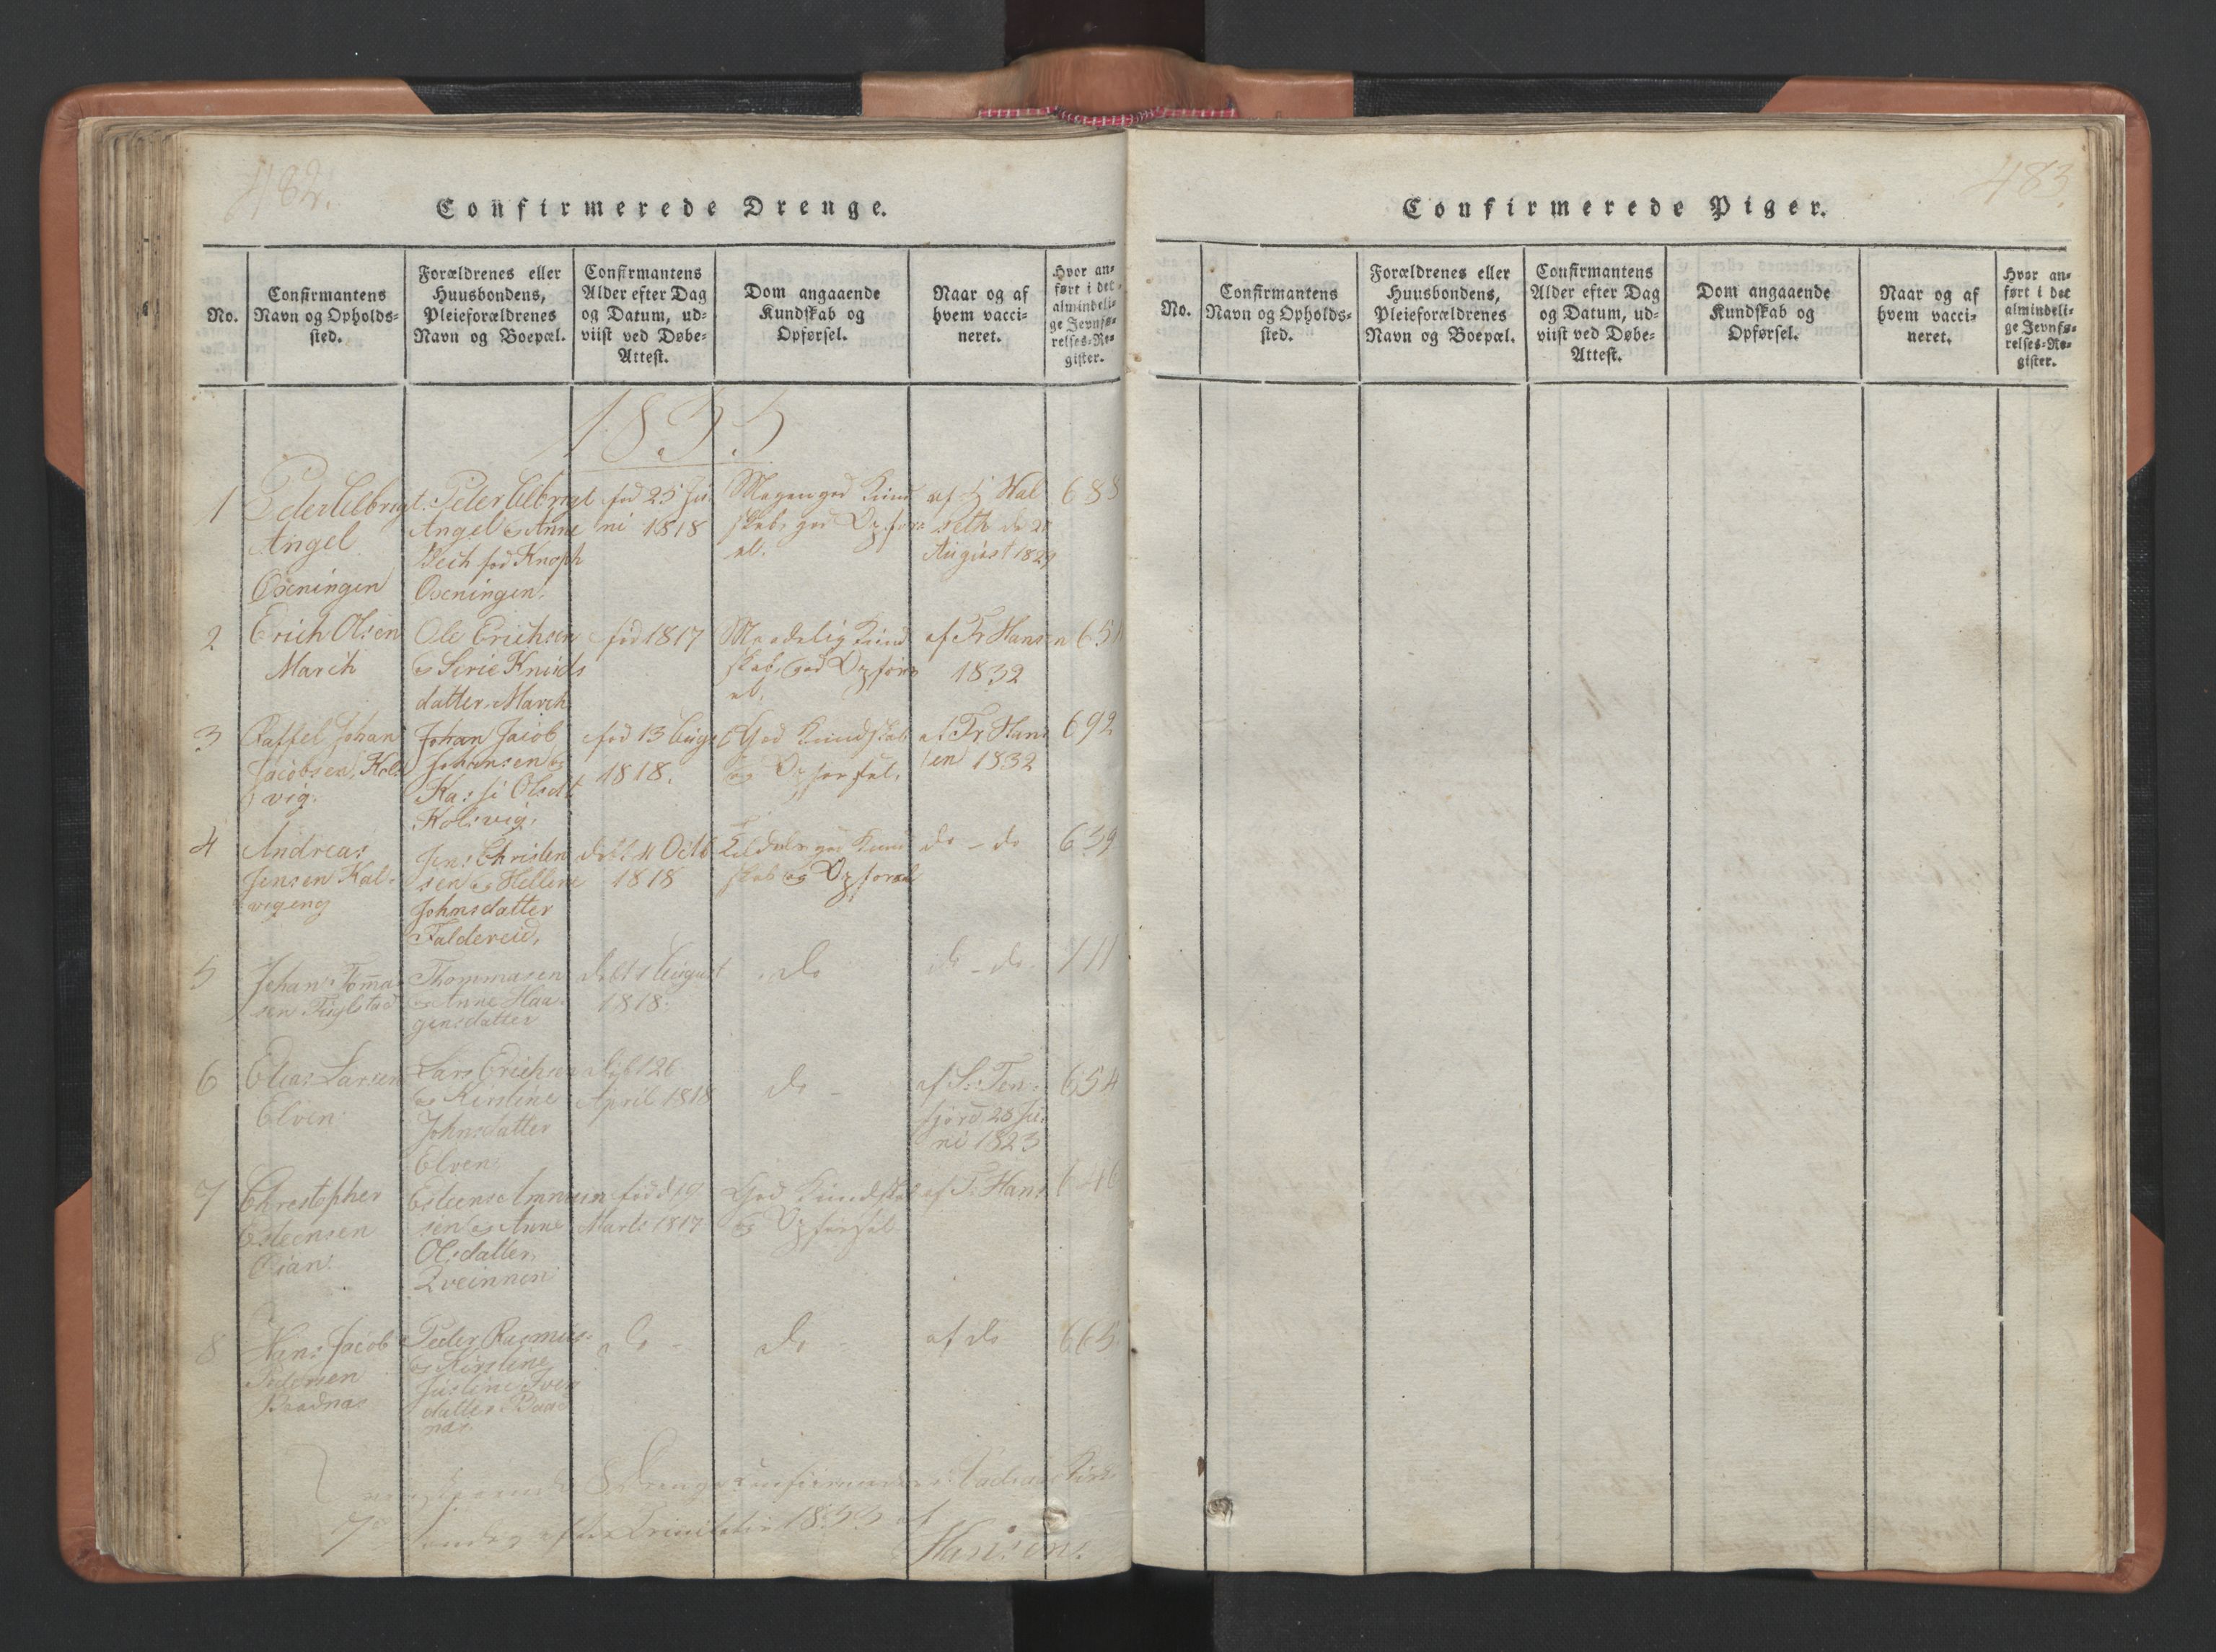 482.
Confirmerede Drenge.
No.
Confirmantens
Navn og Opholds-
sted.
Forældrenes eller
Huusbondens,
Pleieforældrenes
Navn og Boepæl.
Confirmantens
Alder efter Dag
og Datum, ud-
viist ved Døbe-
Attest.
Dom angaaende
Kundskab og
Opførsel.
Naar og af
hvem vacci-
neret.
Hvor an-
ført i det
almindeli-
ge Jevnfø-
relses-Re-
gister.
1833
1
Peder Elbrigt
Angel
Oxeningen
Peter Elbrigt
Angel og Anne
fød Knoph
Oxeningen.
fød 25 Ju-
ni 1818
Megen god Kund
skab, god Opførs
el.
af
seth d. 21
August 1829
688
2
Erich Olsen
March
Ole Erichsen
og Sirie Knuds
datter March
fød 1817
Maadelig Kund
skab, god Opførs
el.
af Fr Hansen
1832
3
Johan
Jacobsen, Kols
vig.
Johan Jacob
Johansen og
Olsdt
Kolsvig.
fød 13 Aug
1818.
God Kundskab
og Opførsel.
af Fr. Han
sen 1832
692
4
Andreas
Jensen Kal-
vigeng
Jens Christen
sen og Hellene
Johnsdatter
Faldereid.
døbt 11 Octb
1818
god Kund
skab og Opførsel
do - do
639
5
Johan Toma
sen Fuglstad
Thommasen
og Anne Haa-
gensdatter
døbt 1 August
1818.
do
do - do.
711
6
Elias Larsen
Elven
Lars Erichsen
og Kirstine
Johnsdatter
Elven
døbt 26
April 1818
do -
af S. Ter-
fjord 26 Ju-
ni 1823
654
7
Christopher
Esteensen
Oian
Esteen Amun
sen og Anne
Olsdatter
fød d. 19
Marts 1817
God Kundskab
og Opførsel
af F. Hans
646
8
Hans Jacob
Pedersen
Baadnæs
Peder Rasmus-
og Kirstine
Justine Iver
datter Baad
næs.
do -
do -
af do
665
8 Drenge confirmerede i
7de Søndag efter Trinitatis 1833 af
Hansen.
483.
Confirmerede Piger.
No.
Confirmantens
Navn og Opholds-
sted.
Forældrenes eller
Huusbondens,
Pleieforældrenes
Navn og Boepæl.
Confirmantens
Alder efter Dag
og Datum, ud-
viist ved Døbe-
Attest.
Dom angaaende
Kundskab og
Opførsel.
Naar og af
hvem vacci-
neret.
Hvor an-
ført i det
almindeli-
ge Jevnfø-
relses-Re-
gister.